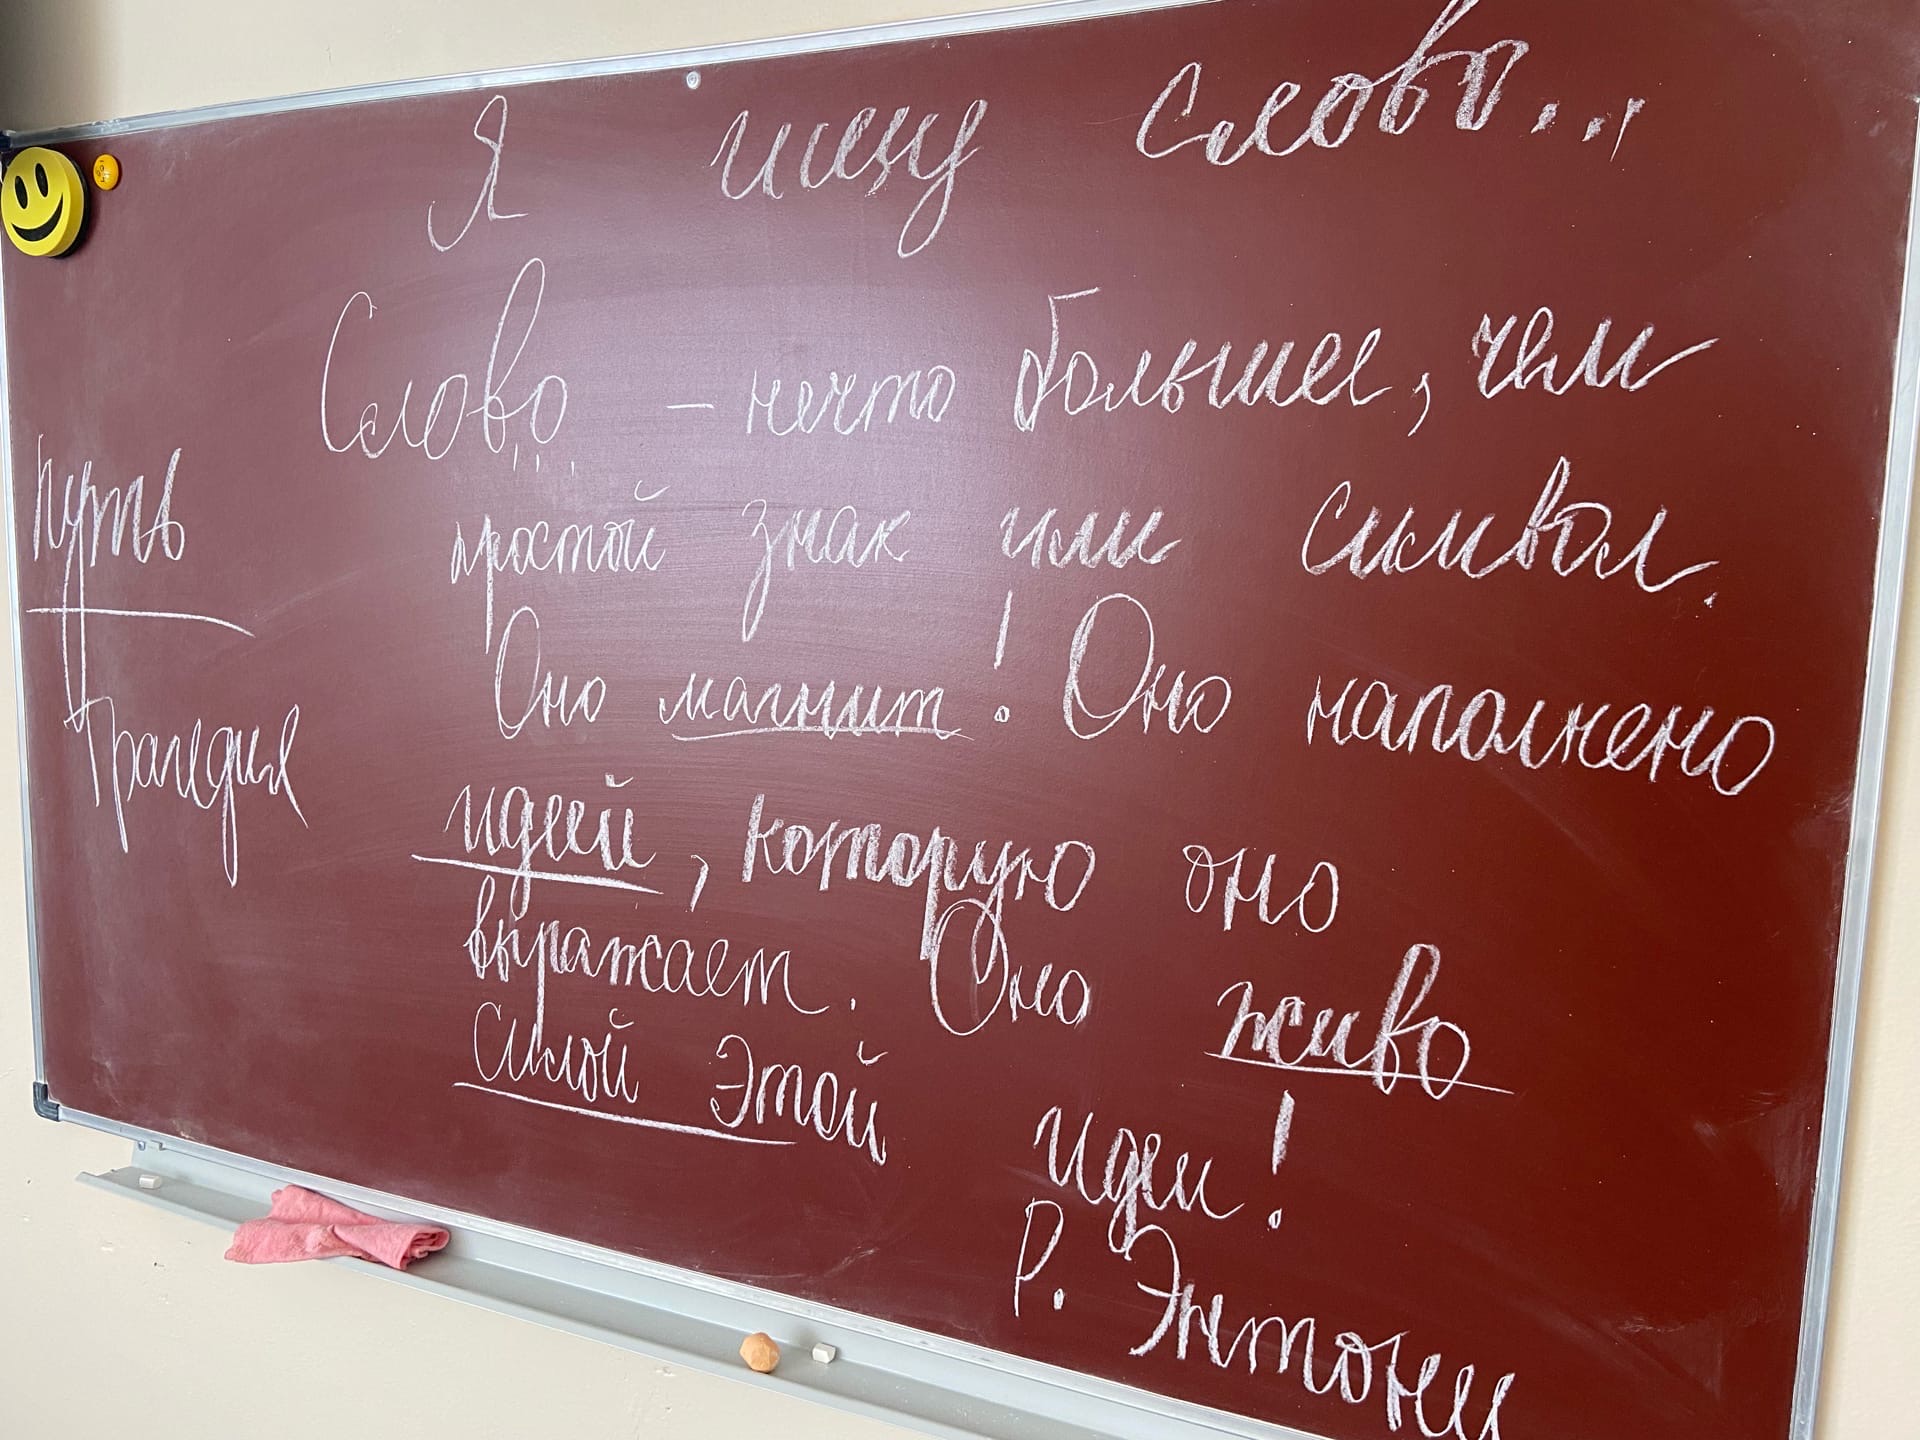 Я ищу слово...
Слово... – нечто большее, чем
простой знак или символ.
Оно магнит! Оно наполнено
идеей, которую оно
выражает. Оно живо
силой этой идеи!
Р. Энтони
Путь
Трагедия